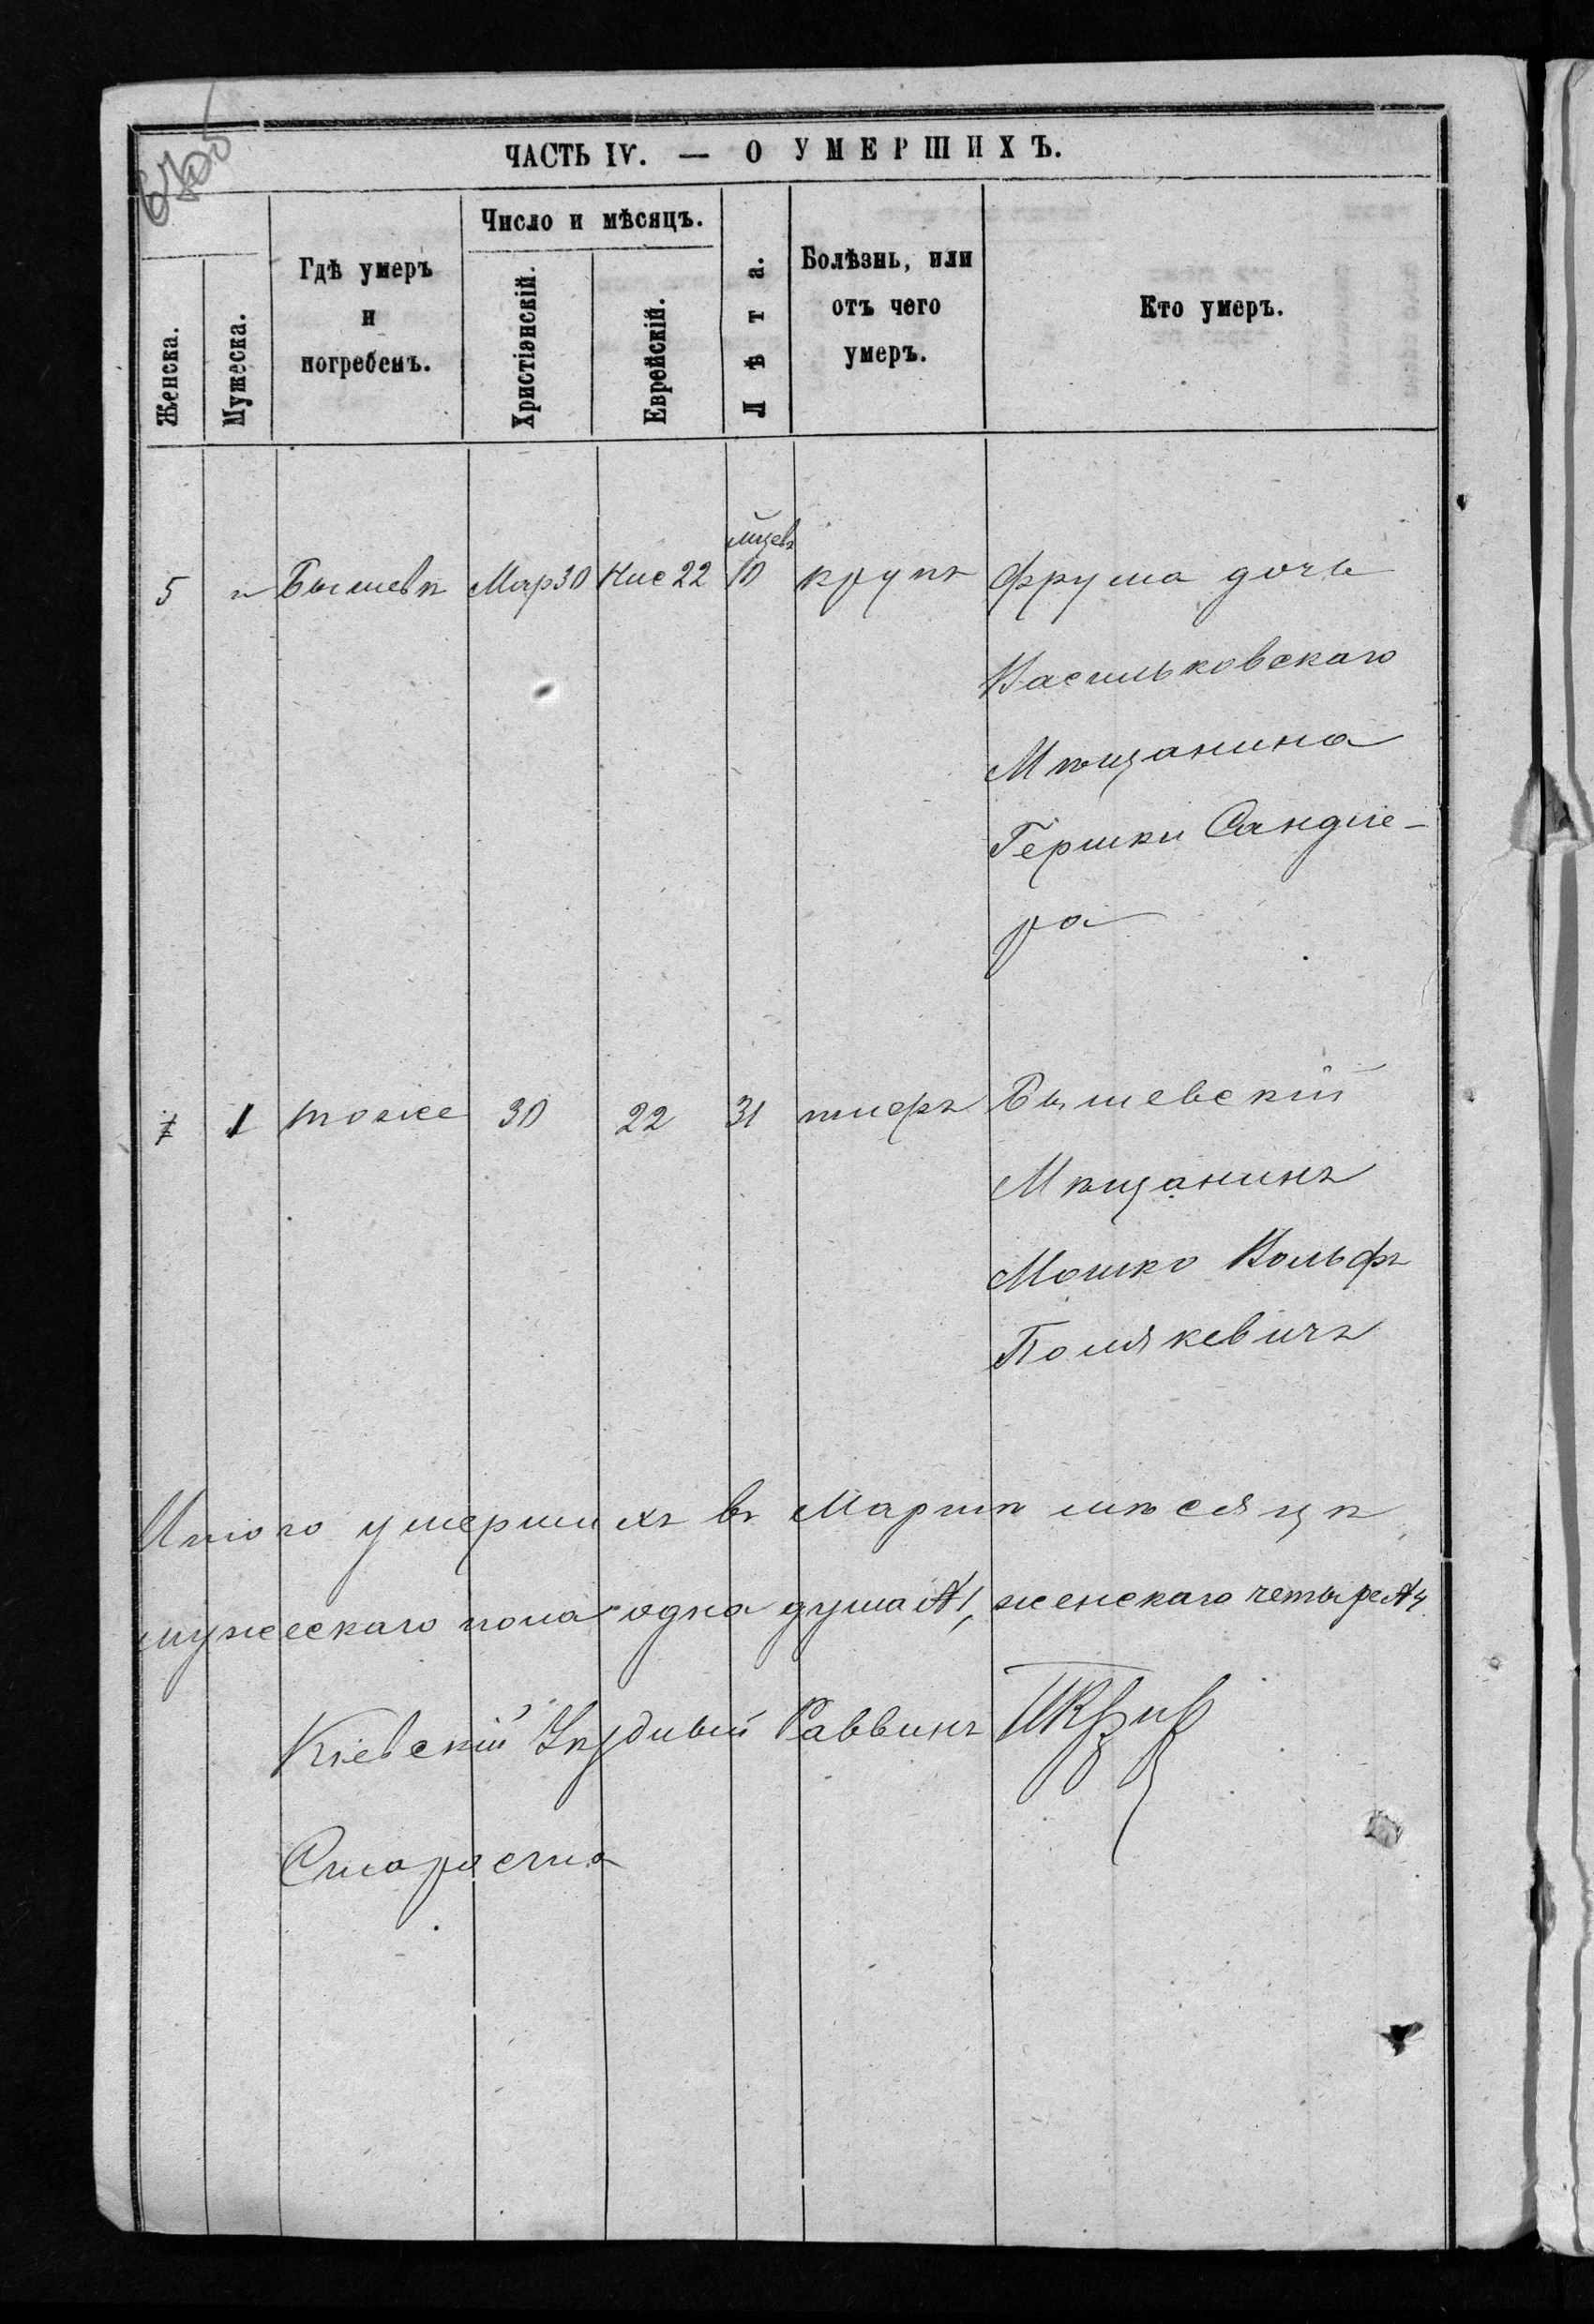 ЧАСТЬ IV. — О УМЕРШИХЪ.
Женска.
Мужеска.
Гдѣ умеръ и погребенъ.
Число и мѣсяцъ.
Христіанскій.
Еврейскій.
Лѣта.
Болѣзнь, или отъ чего умеръ.
Кто умеръ.
мцевъ
5 " Бышевѣ Мар 30 Нис 22 10 крупъ Фрума дочь
Васильковскаго
Мѣщанина
Гершки Сандле-
ра
1 тоже 30 22 31 тифъ Бышевскій
Мѣщанинъ
Мошко Вольфъ
Полякевичъ
Итого умершихъ въ Мартѣ мѣсяцѣ
мужескаго пола одна душа №1, женскаго четыре №4.
Кіевскій Уѣздный Раввинъ
Староста